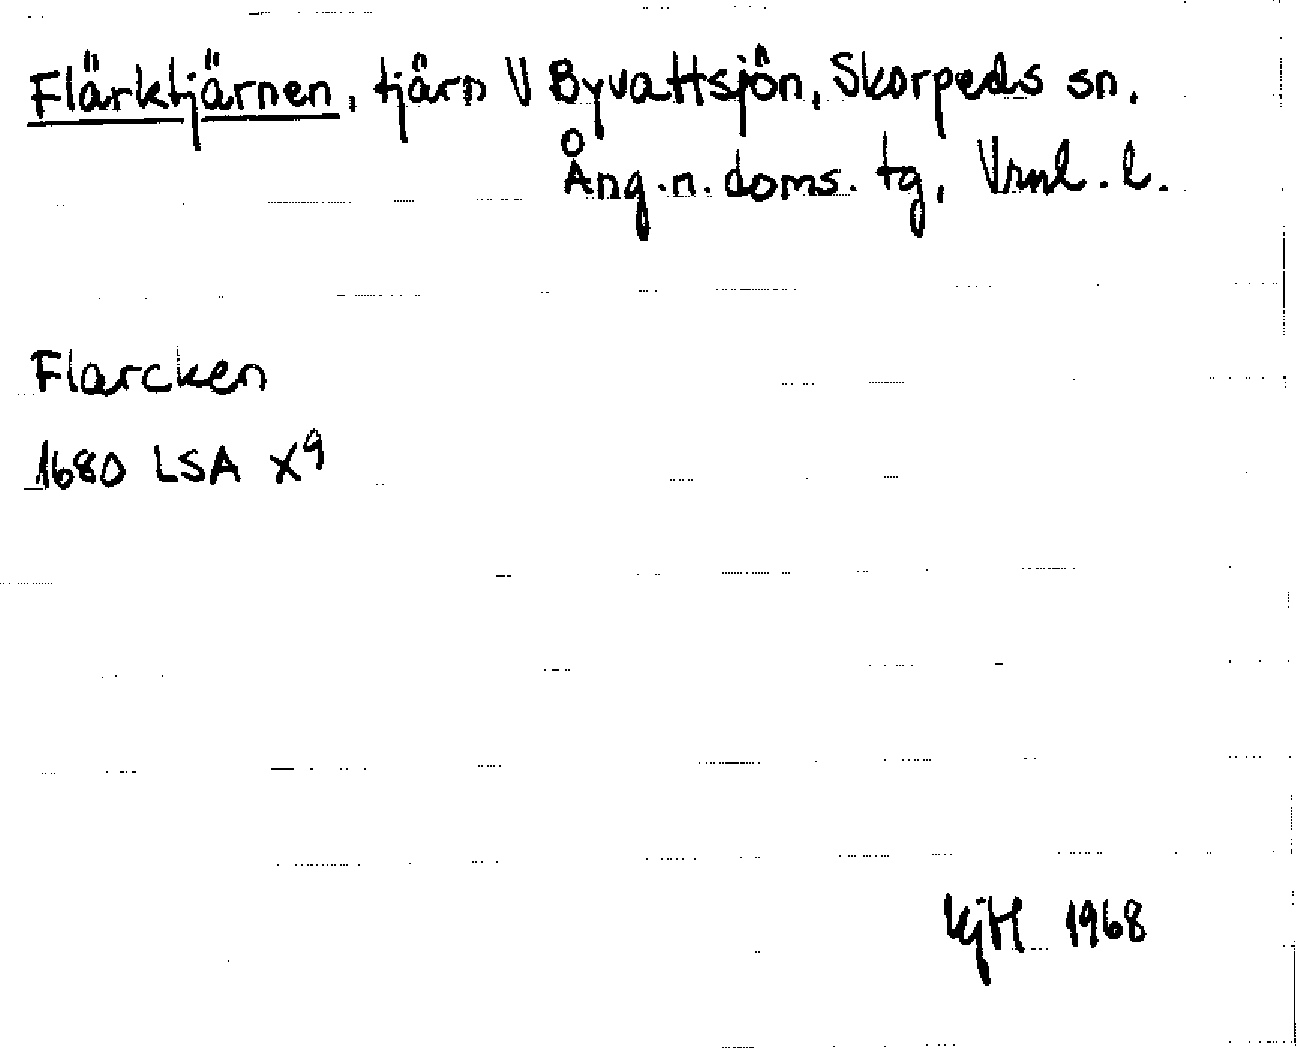 Flärktjärnen, tjärn V Byvattsjön, Skorpeds sn.
Ång.n. doms. tg, Vrnl. l.
Flarcken
1680 LSA X9
KjH 1968